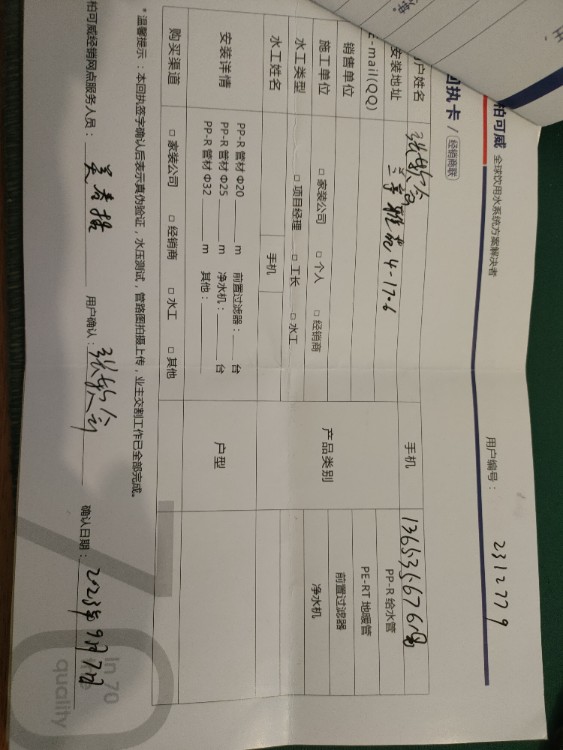 柏可威 全球饮用水系统方案解决者
用户编号： 2312779
回执卡 / 经销商联
户姓名 手机
安装地址 兰亭雅苑 4-17-6
E-mail(QQ) PP-R 给水管
销售单位 PE-RT 地暖管
施工单位 □ 家装公司 □ 个人 □ 经销商 产品类别 前置过滤器
水工类型 □ 项目经理 □ 工长 □ 水工 净水机
水工姓名 手机
安装详情 户型
PP-R 管材 Φ20 m 前置过滤器： 台
PP-R 管材 Φ25 m 净水机： 台
PP-R 管材 Φ32 m 其他：
购买渠道 □ 家装公司 □ 经销商 □ 水工 □ 其他
* 温馨提示：本回执签字确认后表示真伪验证，水压测试，管路图拍摄上传，业主交割工作已全部完成。
柏可威经销网点服务人员： 用户确认： 确认日期： 2023年9月7日
In 70
quality